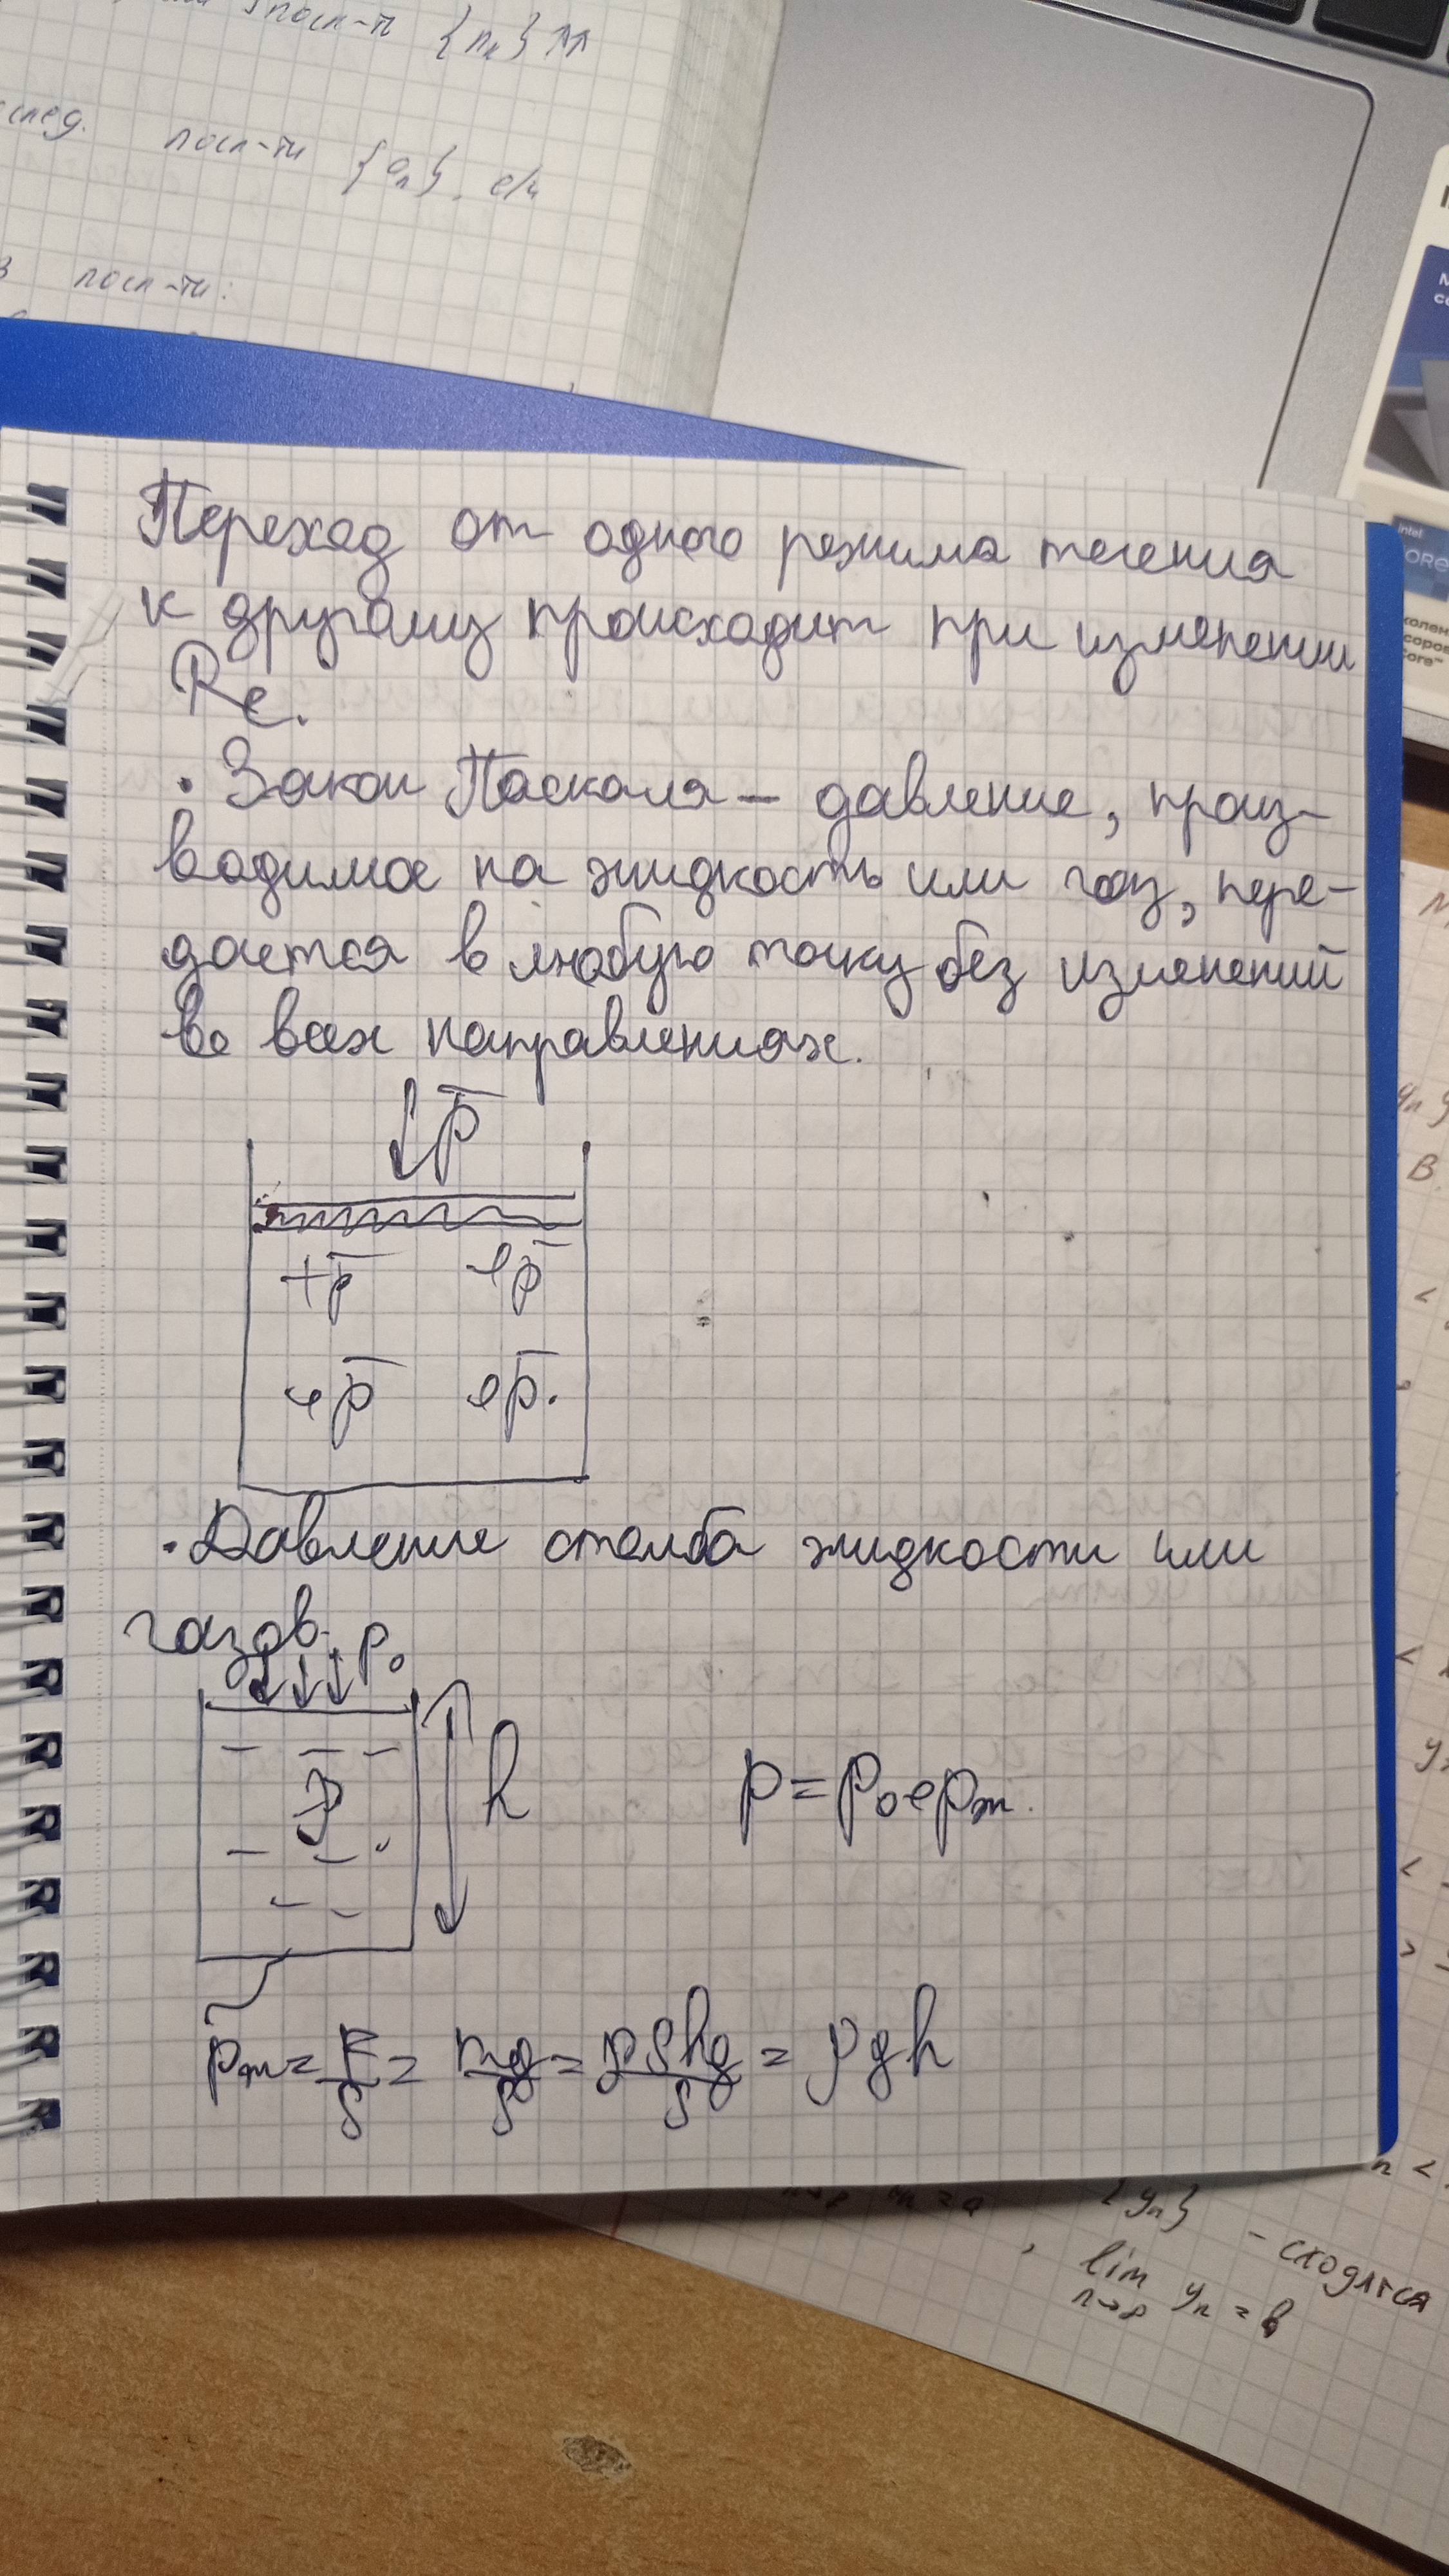 посл-ти {nₖ} ↑↑
след. посл-ти {aₙ}, если
в посл-ти:
Переход от одного режима течения
к другому происходит при изменении
Re.
· Закон Паскаля — давление, произ-
водимое на жидкость или газ, пере-
дается в любую точку без изменений
во всех направлениях.
↓p̅
+p̅ +p̅
+p̅ +p̅.
· Давление столба жидкости или
газов.
p₀
ρ
h
p = p₀ + pж.
pж = F/S = mg/S = ρShg/S = ρgh
{yₙ} - сходятся
, lim yₙ = b
n→∞
intel